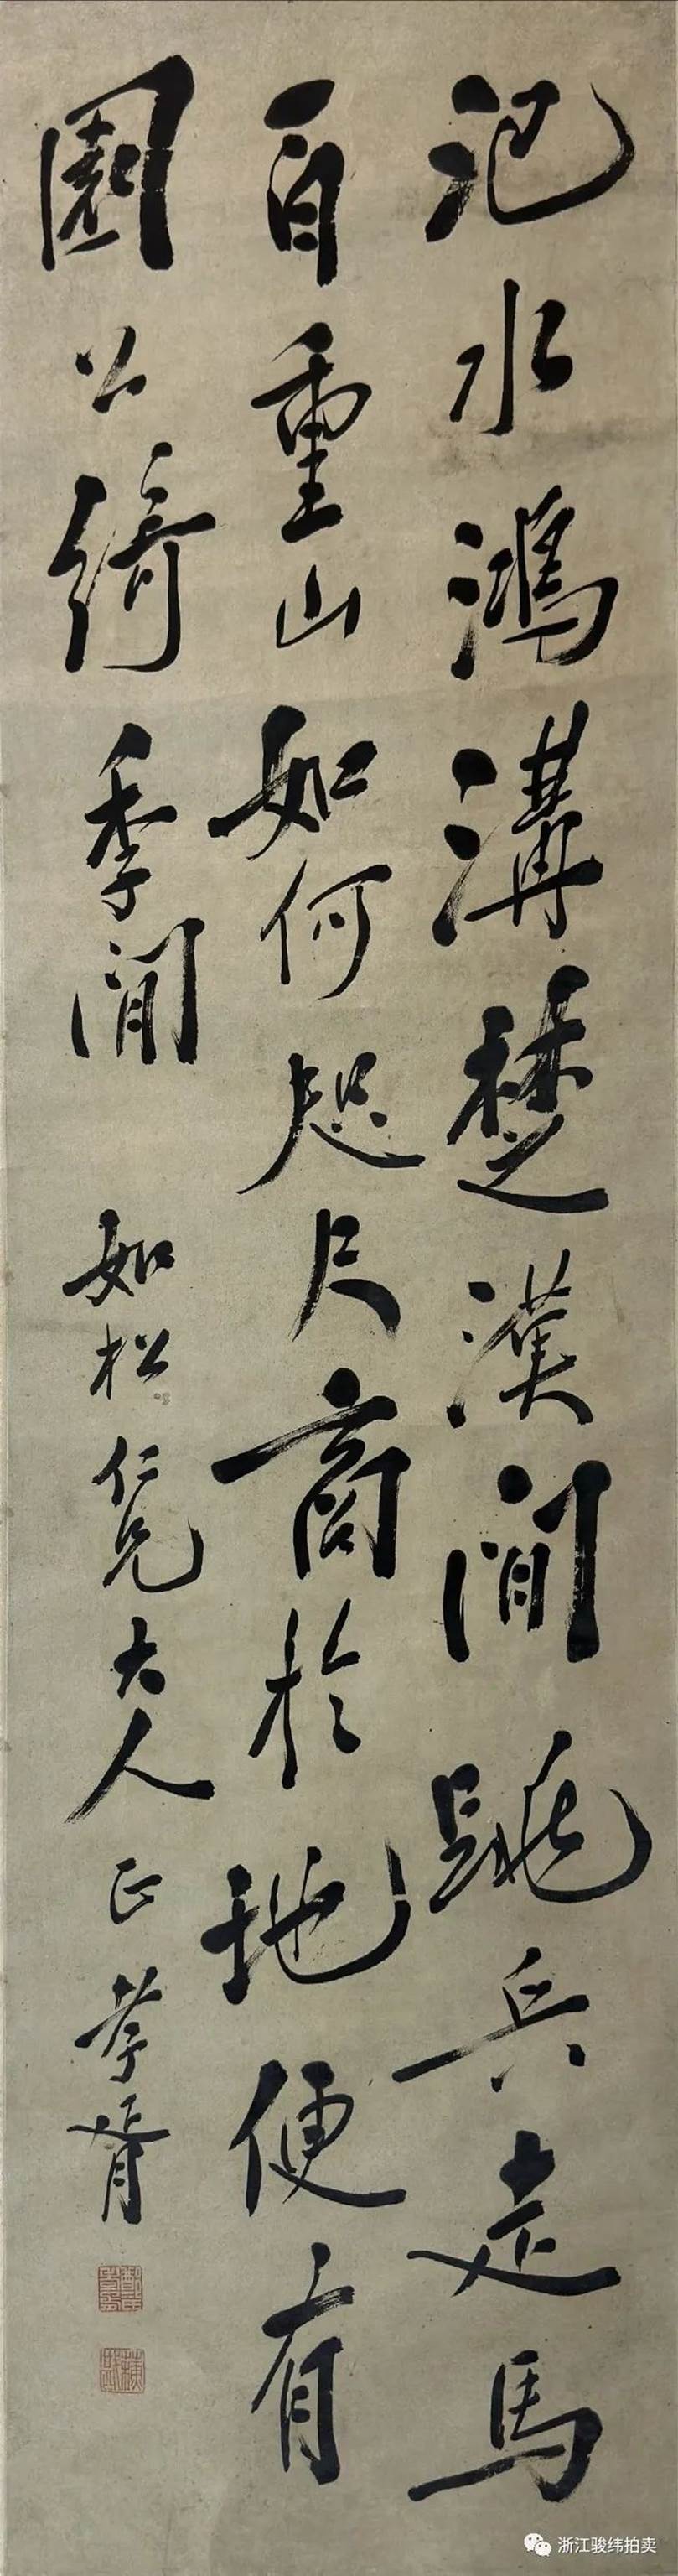 汜水鴻溝楚漢間跳兵走馬
百重山如何咫尺商於地便有
園公綺季閒　如松仁兄大人正孝胥
浙江骏纬拍卖